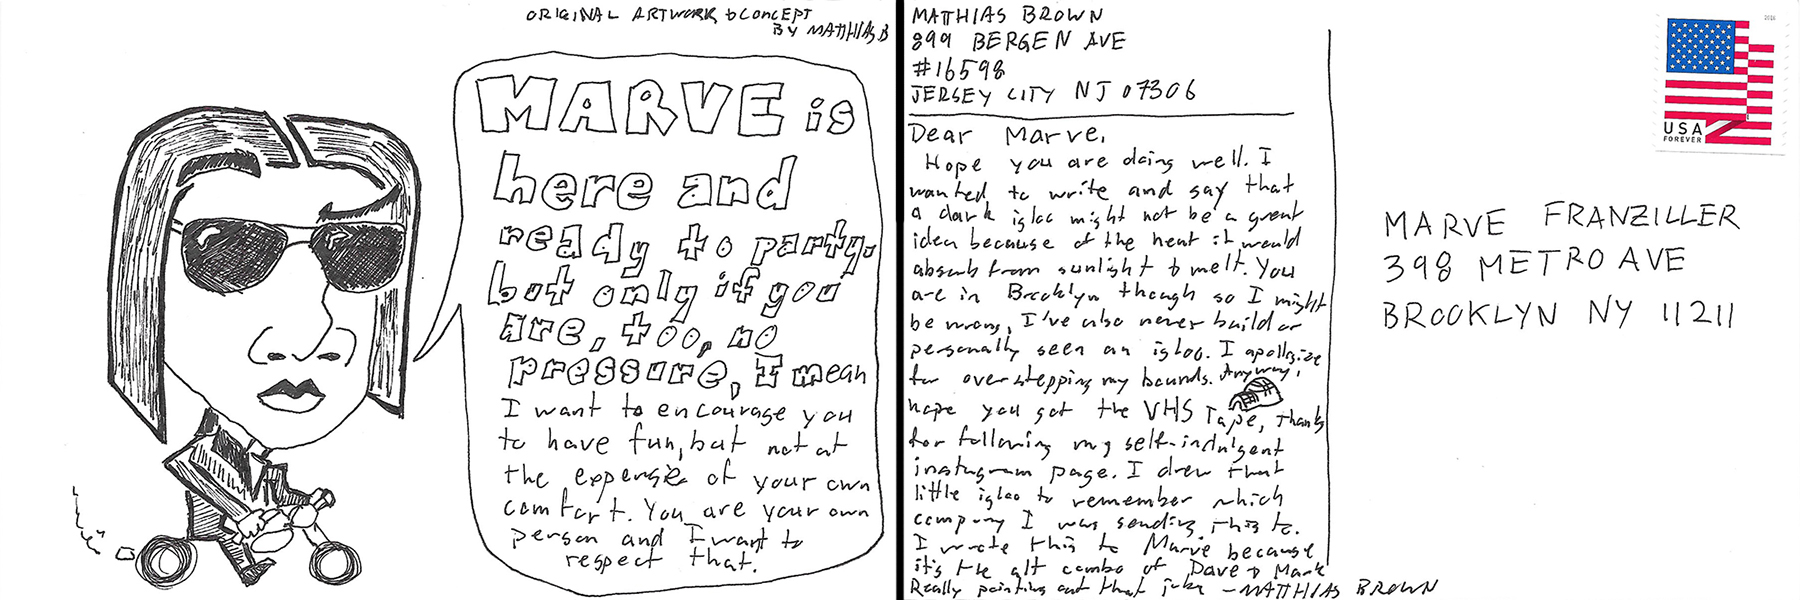 ORIGINAL ARTWORK & CONCEPT
BY MATTHIAS B
MARVE is
here and
ready to party,
but only if you
are, too, no
pressure, I mean
I want to encourage you
to have fun, but not at
the expense of your own
comfort. You are your own
person and I want to
respect that.
MATTHIAS BROWN
899 BERGEN AVE
#16598
JERSEY CITY NJ 07306
Dear Marve,
Hope you are doing well. I
wanted to write and say that
a dark igloo might not be a great
idea because of the heat it would
absorb from sunlight & melt. You
are in Brooklyn though so I might
be wrong, I've also never build or
personally seen an igloo. I apollogize
for overstepping my bounds. Anyway,
hope you got the VHS Tape, thanks
for following my self-indulgent
instagram page. I drew that
little igloo to remember which
company I was sending this to.
I wrote this to Marve because
it's the alt combo of Dave & Mark
Really pointing out that joke - MATTHIAS BROWN
2016
USA
FOREVER
MARVE FRANZILLER
398 METRO AVE
BROOKLYN NY 11211